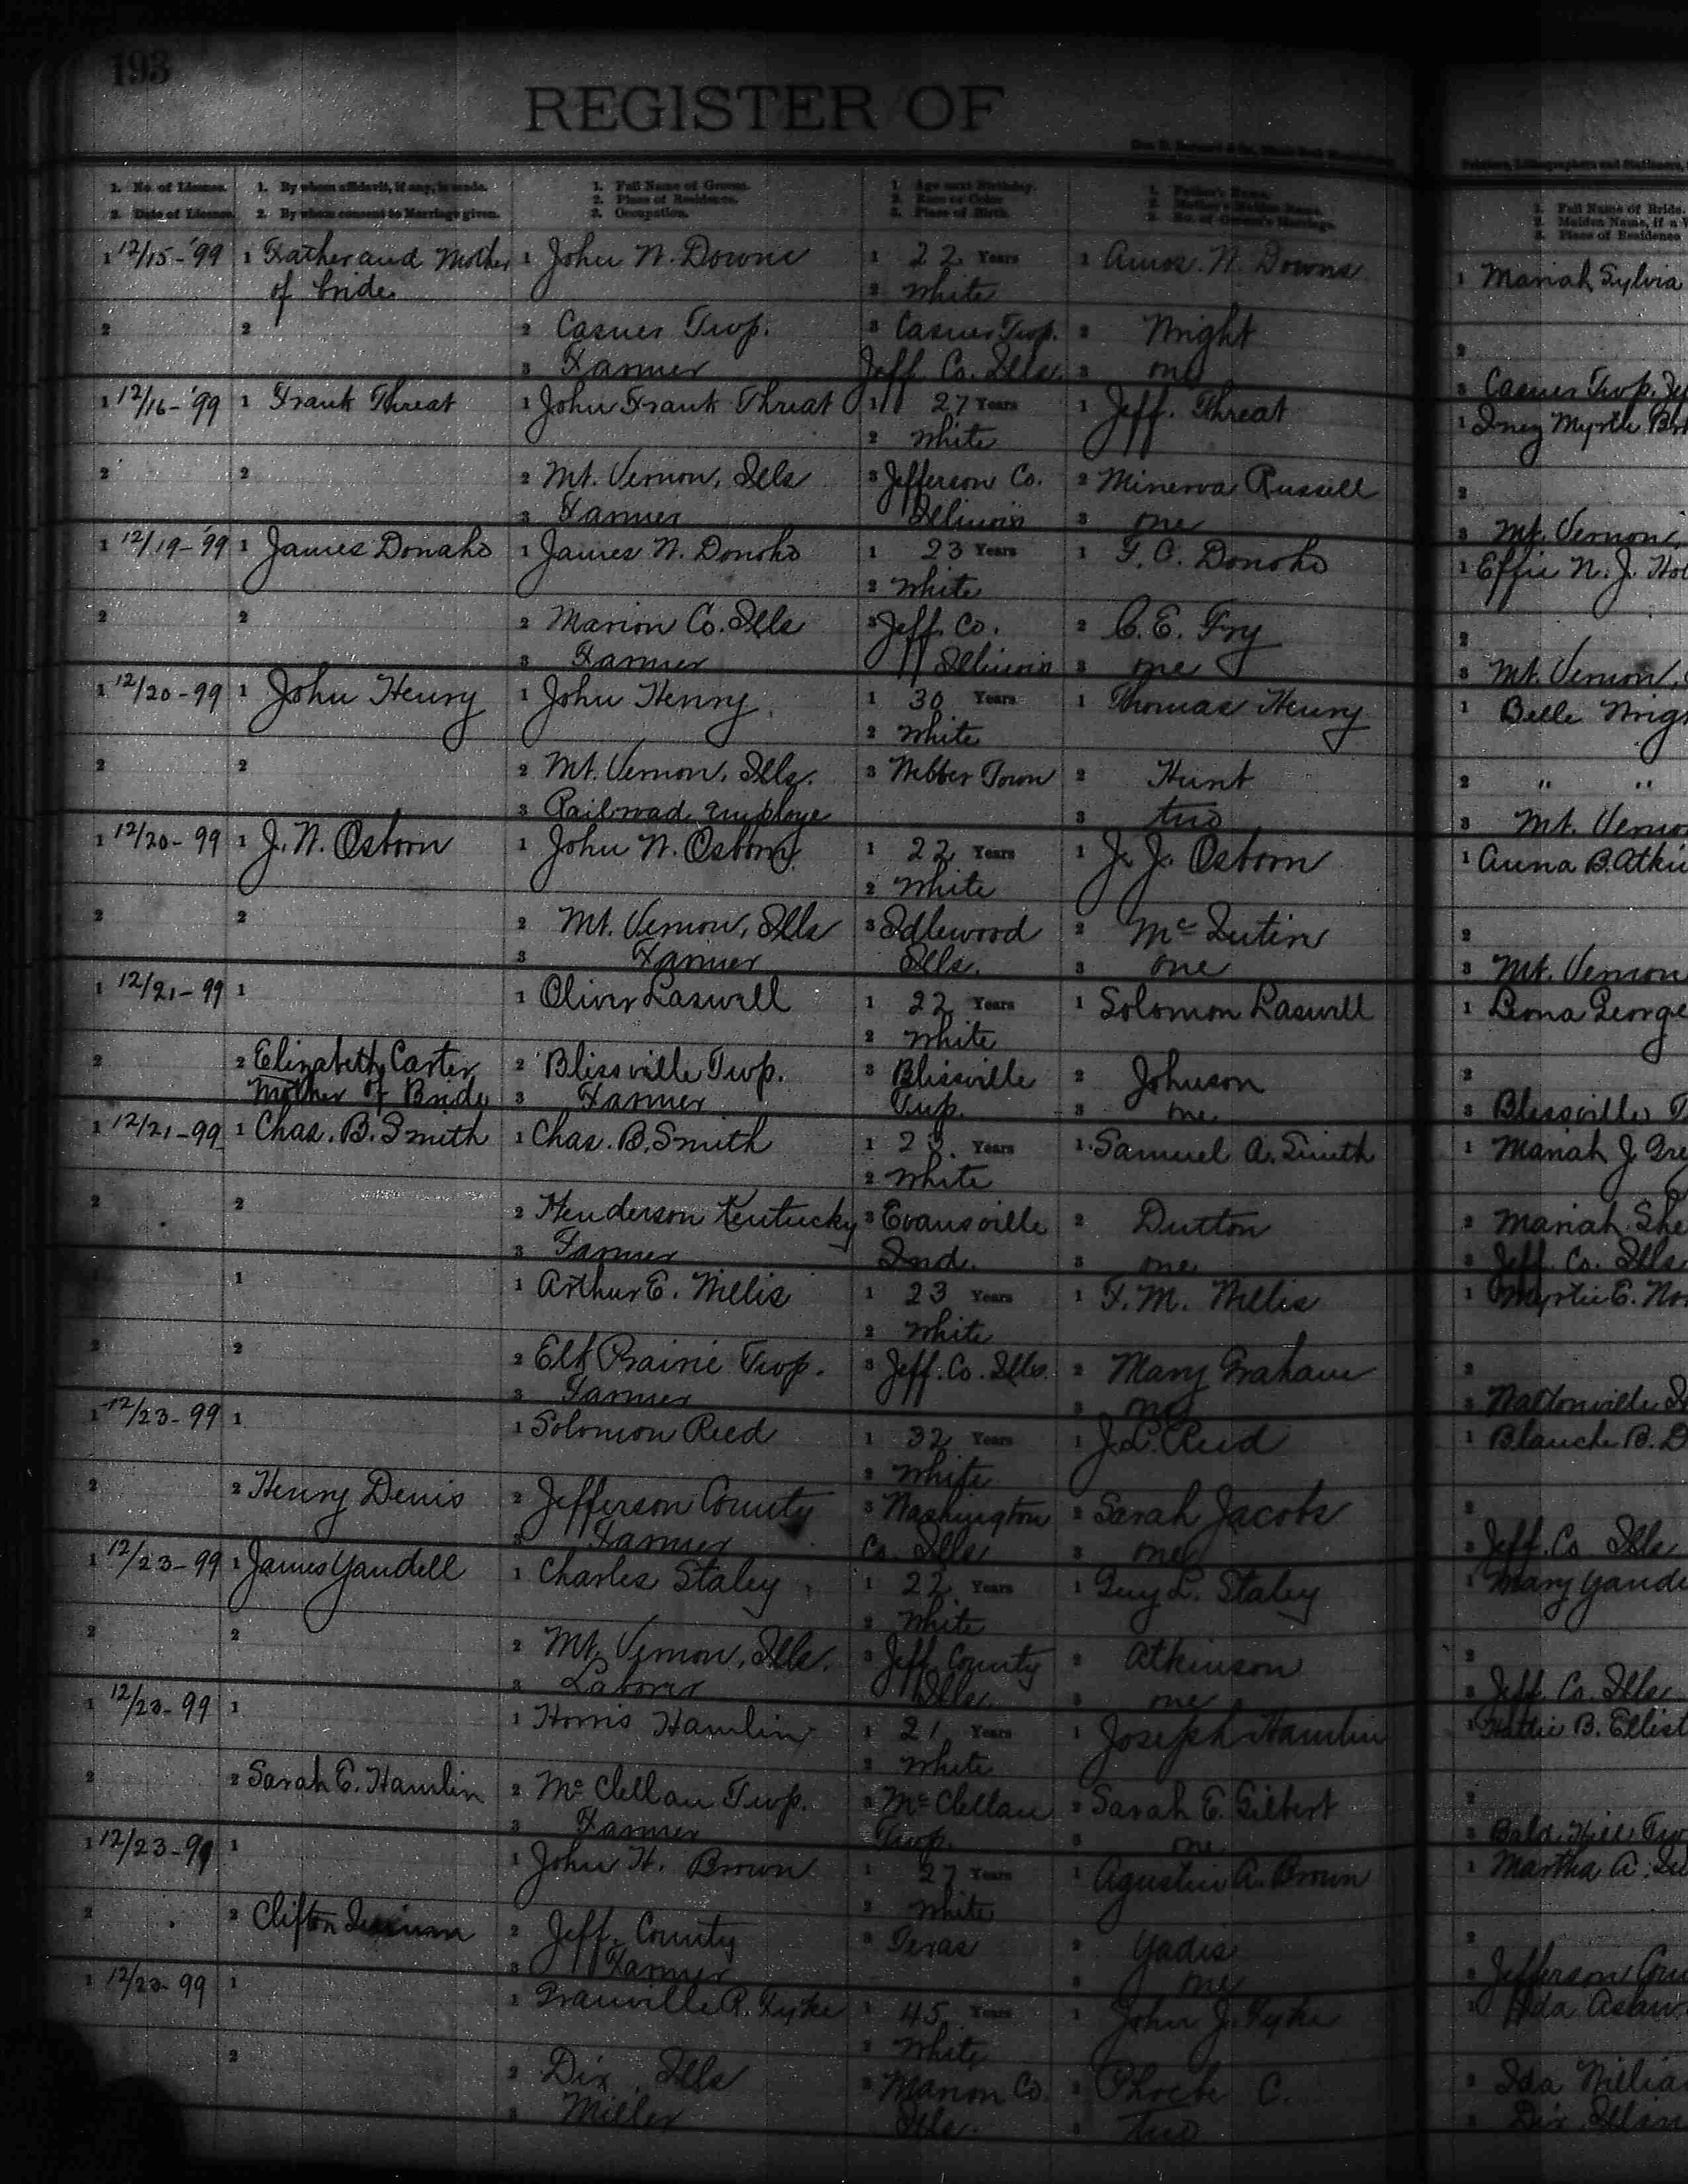 193
REGISTER OF
1. No. of License. 1. By whom affidavit, if any, is made. 1. Full Name of Groom. 1. Age next Birthday. 1. Father's Name. 1. Full Name of Bride.
2. Date of License. 2. By whom consent to Marriage given. 2. Place of Residence. 2. Race or Color 2. Mother's Maiden Name. 2. Maiden Name, if a
3. Occupation. 3. Place of Birth. 3. No. of Groom's Marriage. 3. Place of Residence
1 12/15-'99 1 Father and Mother 1 John W. Downs 1 22 Years 1 Amos. W. Downs 1 Mariah Sylvia
of bride 2 White
2 2 2 Casner Twp. 3 Casner Twp. 2 Wright 2
3 Farmer Jeff. Co. Ills. 3 one 3 Casner Twp.
1 12/16-'99 1 Frank Threat 1 John Frank Threat 1 27 Years 1 Jeff. Threat 1 Inez Myrtle
2 White
2 2 2 Mt. Vernon, Ills 3 Jefferson Co. 2 Minerva Russell 2
3 Farmer Illinois 3 one 3 Mt. Vernon,
1 12/19-'99 1 James Donaho 1 James W. Donoho 1 23 Years 1 F. C. Donoho 1 Effie N. J.
2 White
2 2 2 Marion Co. Ills 3 Jeff. Co. 2 C. E. Fry 2
3 Farmer Illinois 3 one 3 Mt. Vernon,
1 12/20-99 1 John Henry 1 John Henry 1 30 Years 1 Thomas Henry 1 Belle Wrig
2 White
2 2 2 Mt. Vernon, Ills. 3 Webber Town 2 Hunt 2 " "
3 Railroad Employe 3 two 3 Mt. Verno
1 12/20-99 1 J. W. Osborn 1 John W. Osborn 1 22 Years 1 J. J. Osborn 1 Anna B. Atki
2 White
2 2 2 Mt. Vernon, Ills 3 Idlewood 2 2
3 Farmer Ills. 3 one 3 Mt. Vernon
1 12/21-99 1 1 Oliver Laswell 1 22 Years 1 Solomon Laswell 1 Leona George
2 White
2 2 Elizabeth Carter 2 Blissville Twp. 3 Blissville 2 Johnson 2
Mother of Bride 3 Farmer Twp. 3 one 3 Blissville T
1 12/21-99 1 Chas. B. Smith 1 Chas. B. Smith 1 23 Years 1 Samuel A. Smith 1 Mariah J. Gre
2 White
2 2 2 Henderson Kentucky 3 Evansville 2 Dutton 2 Mariah She
3 Farmer Ind. 3 one 3 Jeff. Co. Ills
1 1 Arthur E. Willis 1 23 Years 1 F. M. Willis 1 Myrtie E. Nor
2 White
2 2 2 Elk Prairie Twp. 3 Jeff. Co. Ills. 2 Mary Graham 2
3 Farmer 3 one 3 Waltonville
1 12/23-99 1 1 Solomon Reed 1 32 Years 1 J. L. Reed 1 Blanche B. D
2 White
2 2 Henry Denis 2 Jefferson County 3 Washington 2 Sarah Jacobs 2
3 Farmer Co. Ills 3 one 3 Jeff. Co Ills
1 12/23-99 1 James Yandell 1 Charles Staley 1 22 Years 1 Guy L. Staley 1 Mary Yande
2 White
2 2 2 Mt. Vernon, Ills. 3 Jeff. County 2 Atkinson 2
3 Laborer Ills. 3 one 3 Jeff. Co. Ills.
1 12/23-99 1 1 Horris Hamlin 1 21 Years 1 Joseph Hamlin 1 Hattie B. Ellist
2 White
2 2 Sarah E. Hamlin 2 McClellan Twp. 3 McClellan 2 Sarah E. Gilbert 2
3 Farmer Twp. 3 one 3 Bald Hill Tw
1 12/23-99 1 1 John H. Brown 1 27 Years 1 Agustin A. Brown 1 Martha A.
2 White
2 2 Clifton 2 Jeff. County 3 Texas 2 Yadis 2
3 Farmer 3 one 3 Jefferson Coun
1 12/23-99 1 1 Granville R. Fyke 1 45 Years 1 John J. Fyke 1 Ada
2 White
2 2 Dix, Ills 3 Marion Co. 2 Phoebe C. 2 Ida Willia
3 Miller Ills. 3 two 3 Dix Illin